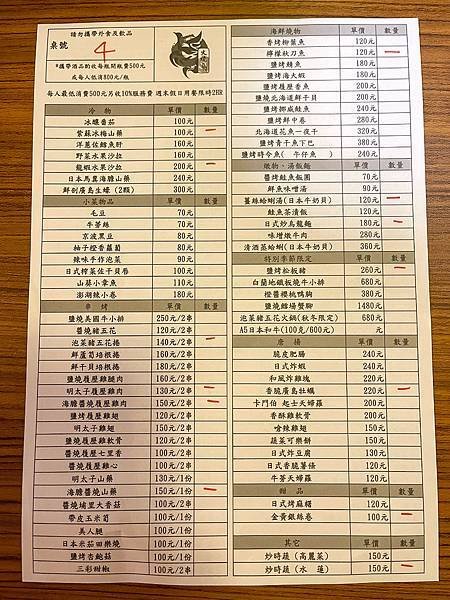 請勿攜帶外食及飲品
桌號
4
*攜帶酒品酌收每瓶開瓶費500元
或每人低消800元/瓶
每人最低消費500元另收10%服務費 週末假日用餐限時2HR
冷 物 單價 數量
冰釀番茄 100元
紫蘇冰梅山藥 100元
洋蔥佐鱈魚肝 160元
野菜水果沙拉 160元
龍蝦水果沙拉 200元
日本馬糞海膽山藥 240元
鮮剖廣島生蠔(2顆) 300元
小菜物品 單價 數量
毛豆 70元
牛蒡絲 70元
京波黑豆 80元
柚子橙香蘿蔔 80元
辣味手作泡菜 90元
日式榨菜佐干貝卷 100元
山葵小章魚 110元
澎湖辣小卷 180元
串 烤 單價 數量
鹽燒美國牛小排 250元/2串
醬燒豬五花 120元/2串
泡菜豬五花捲 140元/2串
鮮蘆筍培根捲 160元/2串
鮮干貝培根捲 180元/2串
鹽燒履歷雞腿肉 160元/2串
明太子履歷雞肉 130元/2串
海膽醬燒履歷雞肉 150元/2串
鹽烤履歷雞翅 120元/2串
明太子雞翅 150元/2串
鹽燒履歷雞軟骨 120元/2串
醬燒履歷七里香 100元/2串
醬燒履歷雞心 100元/2串
明太子山藥 130元/1份
海膽醬燒山藥 150元/1份
醬燒埔里大香菇 100元/2串
帶皮玉米筍 100元/1份
美人腿 100元/1份
日本米茄田樂燒 100元/1份
鹽烤杏鮑菇 100元/1份
三彩甜椒 100元/2串
海鮮燒物 單價 數量
香烤柳葉魚 120元
檸檬秋刀魚 120元
鹽烤鯖魚 180元
鹽烤海大蝦 180元
鹽烤履歷香魚 200元
鹽燒北海道鮮干貝 200元
鹽烤挪威鮭魚 240元
鹽烤鮮中卷 280元
北海道花魚一夜干 320元
鹽烤青干魚下巴 380元
鹽烤時令魚(午仔魚) 480元
燉物、湯飯麵 單價 數量
醬烤鮭魚飯團 120元
鮮魚味噌湯 90元
薑絲蛤蜊湯(日本牛奶貝) 120元
鮭魚茶漬飯 120元
日式炒烏龍麵 180元
味增燉牛肉 280元
清酒蒸蛤蜊(日本牛奶貝) 360元
特別季節限定 單價 數量
鹽烤松板豬 260元
白蘭地鐵板燒牛小排 680元
橙醬櫻桃鴨胸 380元
鹽燒鱈場蟹腳 1480元
泡菜豬五花火鍋(秋冬限定) 680元
A5日本和牛(100克/600元) 元
唐 揚 單價 數量
脆皮肥腸 240元
日式炸蝦 240元
和風炸雞塊 220元
香脆廣島牡蠣 220元
卡門伯 起士天婦羅 200元
香酥雞軟骨 200元
嗆辣雞翅 150元
蔬菜可樂餅 150元
日式炸豆腐 130元
日式香脆薯條 120元
牛蒡天婦羅 120元
甜 品 單價 數量
日式烤麻糬 120元
金黃銀絲卷 100元
其它 單價 數量
炒時蔬(高麗菜) 150元
炒時蔬(水 蓮) 150元